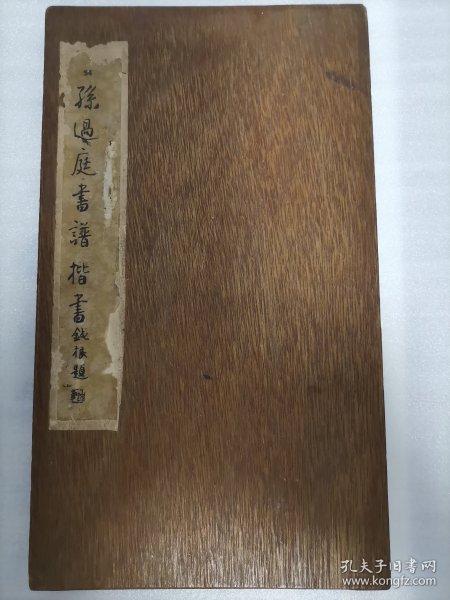 孫過庭書譜楷書
鉞根題
孔夫子旧书网
www.kongfz.com